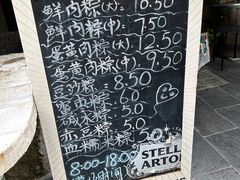 鲜肉粽(大) 10.50
鲜肉粽(中) 7.50
蛋黄肉粽(大) 12.50
蛋黄肉粽(中) 9.50
豆沙粽 8.50
蜜枣粽 6.0
碱水粽 5.0
赤豆粽 5.0
血糯米粽 5.0
8:00-18:00
营业时间
STELLA
ARTOIS